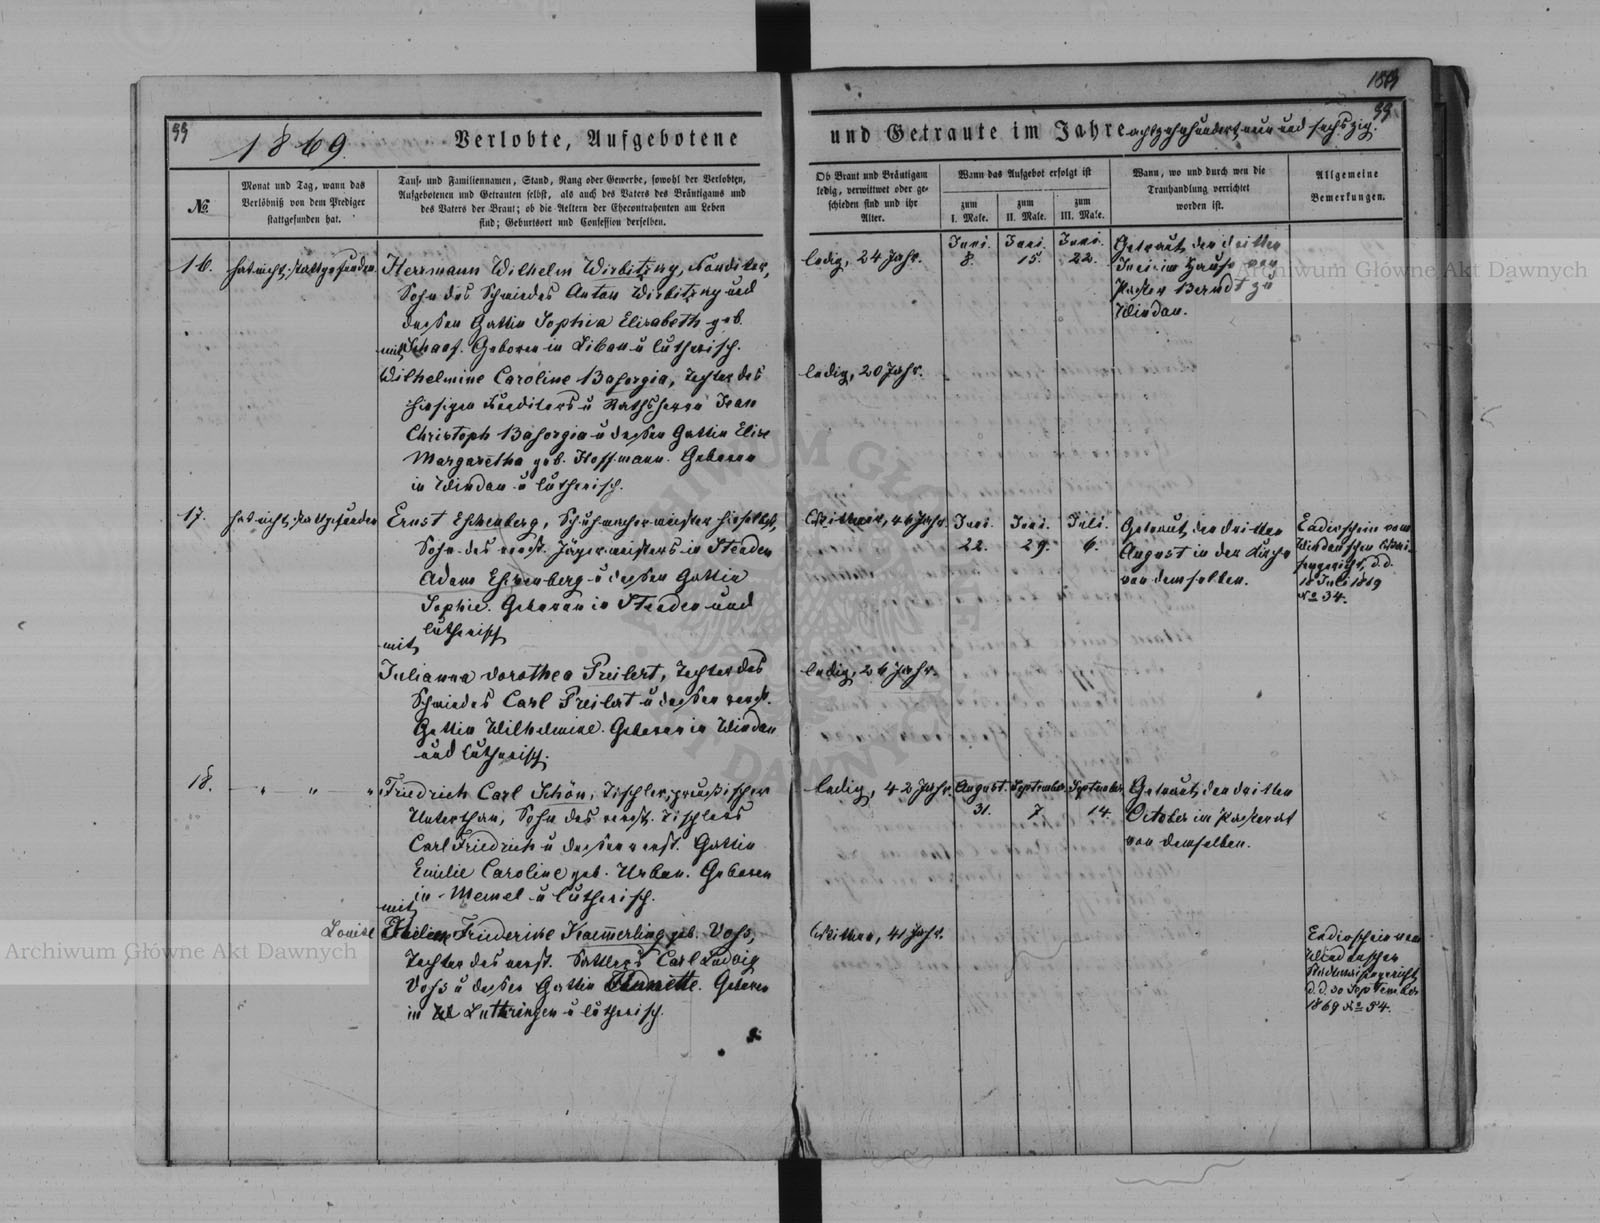 1869
99
1869.
Verlobte, Aufgebotene
99
und Getraute im Jahre achtzehnhundert neun und sechszig.
№
Monat und Tag, wann das
Verlöbniß von dem Prediger
stattgefunden hat.
Tauf- und Familiennamen, Stand, Rang oder Gewerbe, sowohl der Verlobten,
Aufgebotenen und Getrauten selbst, als auch des Vaters des Bräutigams und
des Vaters der Braut; ob die Aeltern der Ehecontrahenten am Leben
sind; Geburtsort und Confession derselben.
Ob Braut und Bräutigam
ledig, verwittwet oder ge-
schieden sind und ihr
Alter.
Wann das Aufgebot erfolgt ist
zum
I. Male.
zum
II. Male.
zum
III. Male.
Wann, wo und durch wen die
Trauhandlung verrichtet
worden ist.
Allgemeine
Bemerkungen.
16.
hat nicht stattgefunden
Herrmann Wilhelm Wirbitzky, Konditor,
Sohn des Schmiedes Anton Wirbitzky und
dessen Gattin Sophia Elisabeth geb.
Schaaf. Geboren in Libau u lutherisch.
mit
Wilhelmine Caroline Baforgia, Tochter des
hiesigen Konditors u Rathsherrn Jean
Christoph Baforgia u dessen Gattin Elise
Margaretha geb. Hoffmann. Geboren
in Windau u lutherisch.
ledig, 24 Jahr.
ledig, 20 Jahr.
Juni.
8.
Juni.
15.
Juni.
22.
Getraut den dritten
Juli im Hause von
Pastor Berndt zu
Windau.
17.
hat nicht stattgefunden
Ernst Eschenberg, Schuhmachermeister hieselbst,
Sohn des verst. Jägermeisters in Stenden
Adam Eschenberg u dessen Gattin
Sophie. Geboren in Stenden und
lutherisch
mit
Julianna Dorothea Preilert, Tochter des
Schmiedes Carl Preilert u dessen verst.
Gattin Wilhelmine. Geboren in Windau
und lutherisch.
Wittwer, 46 Jahr.
ledig, 26 Jahr.
Juni.
22.
Juni.
29.
Juli.
6.
Getraut den dritten
August in der Kirche
von demselben.
Eadenschein vom
Windauschen Wai-
sengericht, d. d.
18 Juli 1869
№ 34.
18.
" " "
Friedrich Carl Schön, Tischler, preußischer
Unterthan, Sohn des verst. Tischlers
Carl Friedrich u dessen verst. Gattin
Emilie Caroline geb. Urban. Geboren
in Memel u lutherisch.
mit
Louise Friederike Kaemmerling geb. Voss,
Tochter des verst. Sattlers Carl Ludwig
Voss u dessen Gattin Jeanette. Geboren
in Luttringen u lutherisch.
ledig, 42 Jahr.
Wittwe, 41 Jahr.
August.
31.
September
7
September
14.
Getraut den dritten
October im Pastorat
von demselben.
Eadenschein vom
Windauschen
Stadtwaisengericht
d. d. 30 September
1869 № 54.
Archiwum Główne Akt Dawnych
Archiwum Główne Akt Dawnych
ARCHIWUM GŁÓWNE AKT DAWNYCH